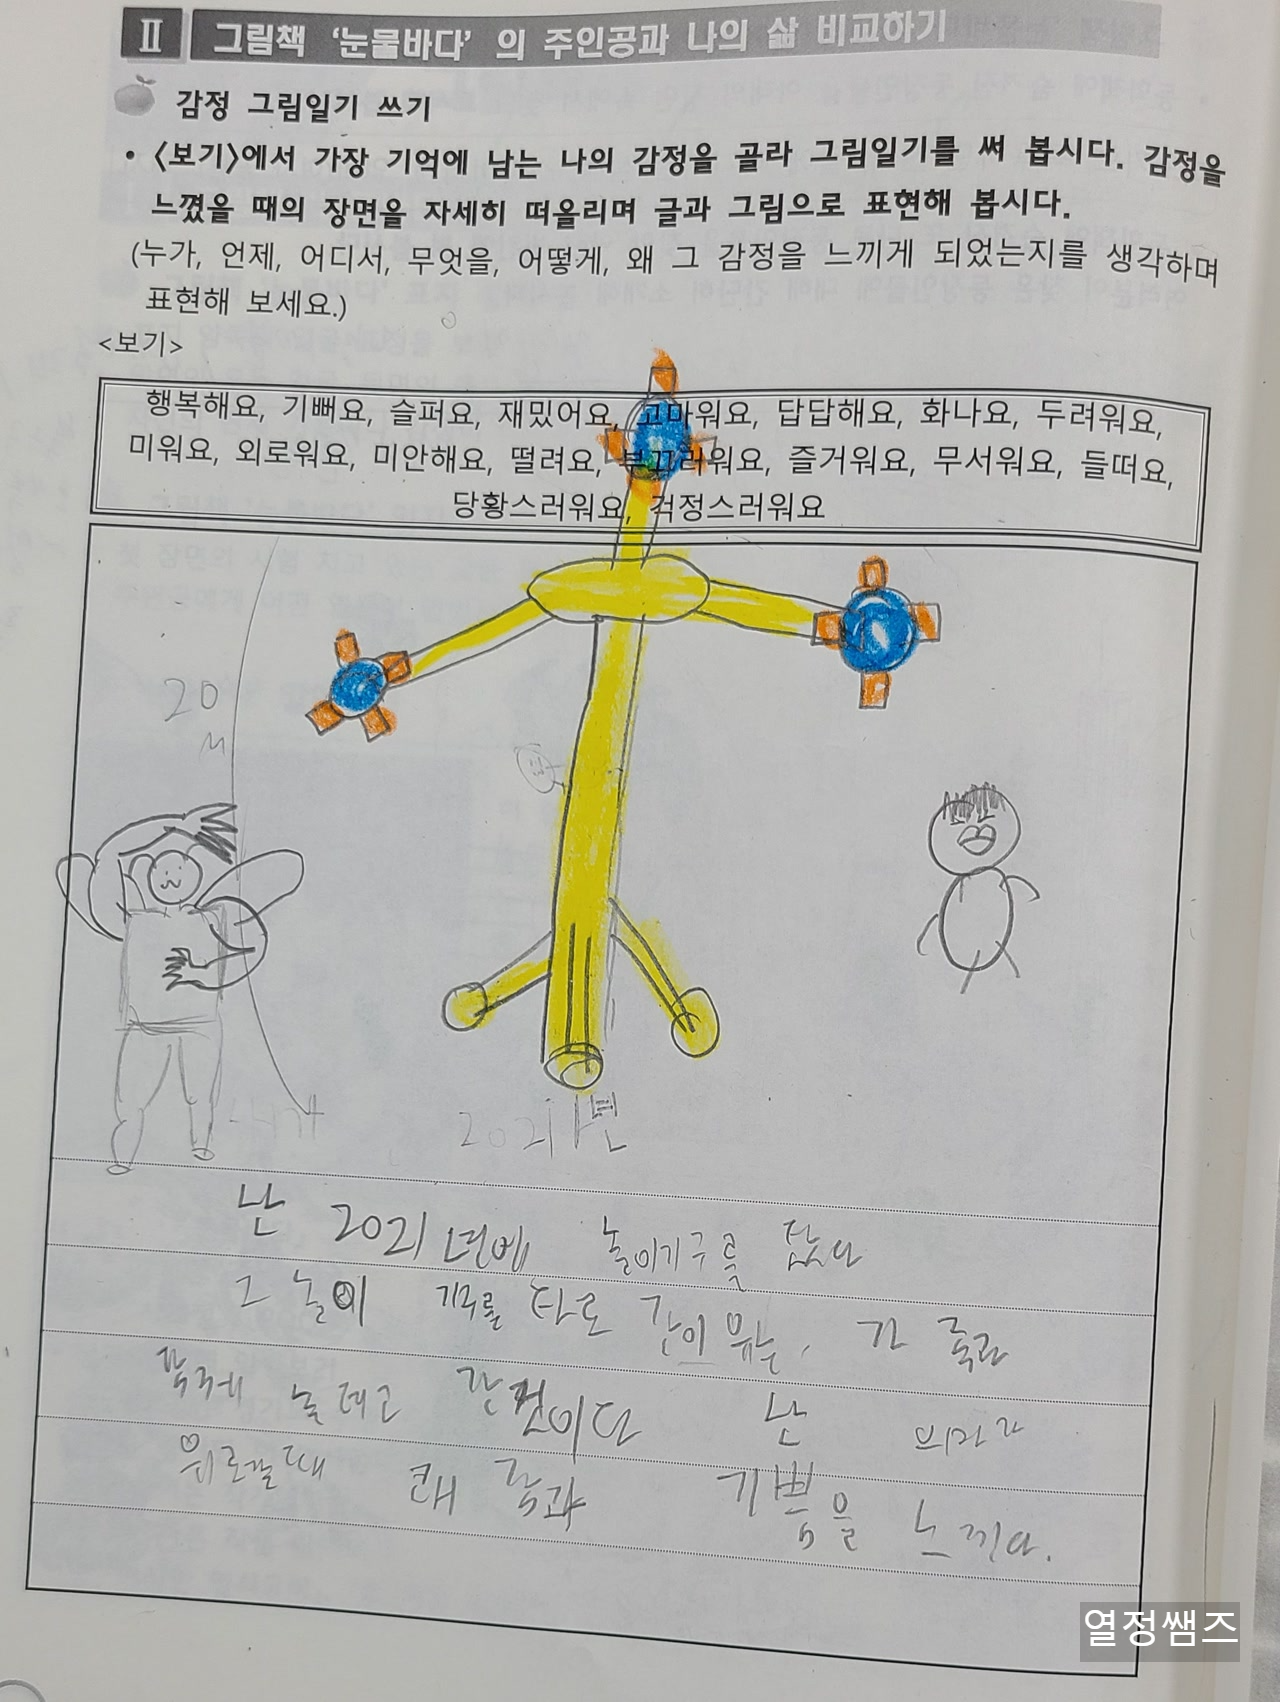 Ⅱ 그림책 '눈물바다' 의 주인공과 나의 삶 비교하기
감정 그림일기 쓰기
• <보기>에서 가장 기억에 남는 나의 감정을 골라 그림일기를 써 봅시다. 감정을
느꼈을 때의 장면을 자세히 떠올리며 글과 그림으로 표현해 봅시다.
(누가, 언제, 어디서, 무엇을, 어떻게, 왜 그 감정을 느끼게 되었는지를 생각하며
표현해 보세요.)
<보기>
행복해요, 기뻐요, 슬퍼요, 재밌어요, 고마워요, 답답해요, 화나요, 두려워요,
미워요, 외로워요, 미안해요, 떨려요, 부끄러워요, 즐거워요, 무서워요, 들떠요,
당황스러워요, 걱정스러워요
20
M
2021년
난 2021년에 놀이기구를 탔다
그 놀이 기구를 타로 간이유는,
난
위로갈때 쾌락과 기쁨을 느끼다.
열정쌤즈